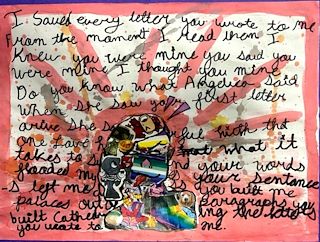 I Saved every letter you wrote to me
From the moment I read them I
Knew you were mine you said you
were mine I thought you mine
Do you know what Angelica said
When she saw your first letter
arive she s ful with that
one have what it
takes to s
flooded my your words
s left me your sentence
palaces out paragraphs you
built Cathed ing the letters
you wrote to me.